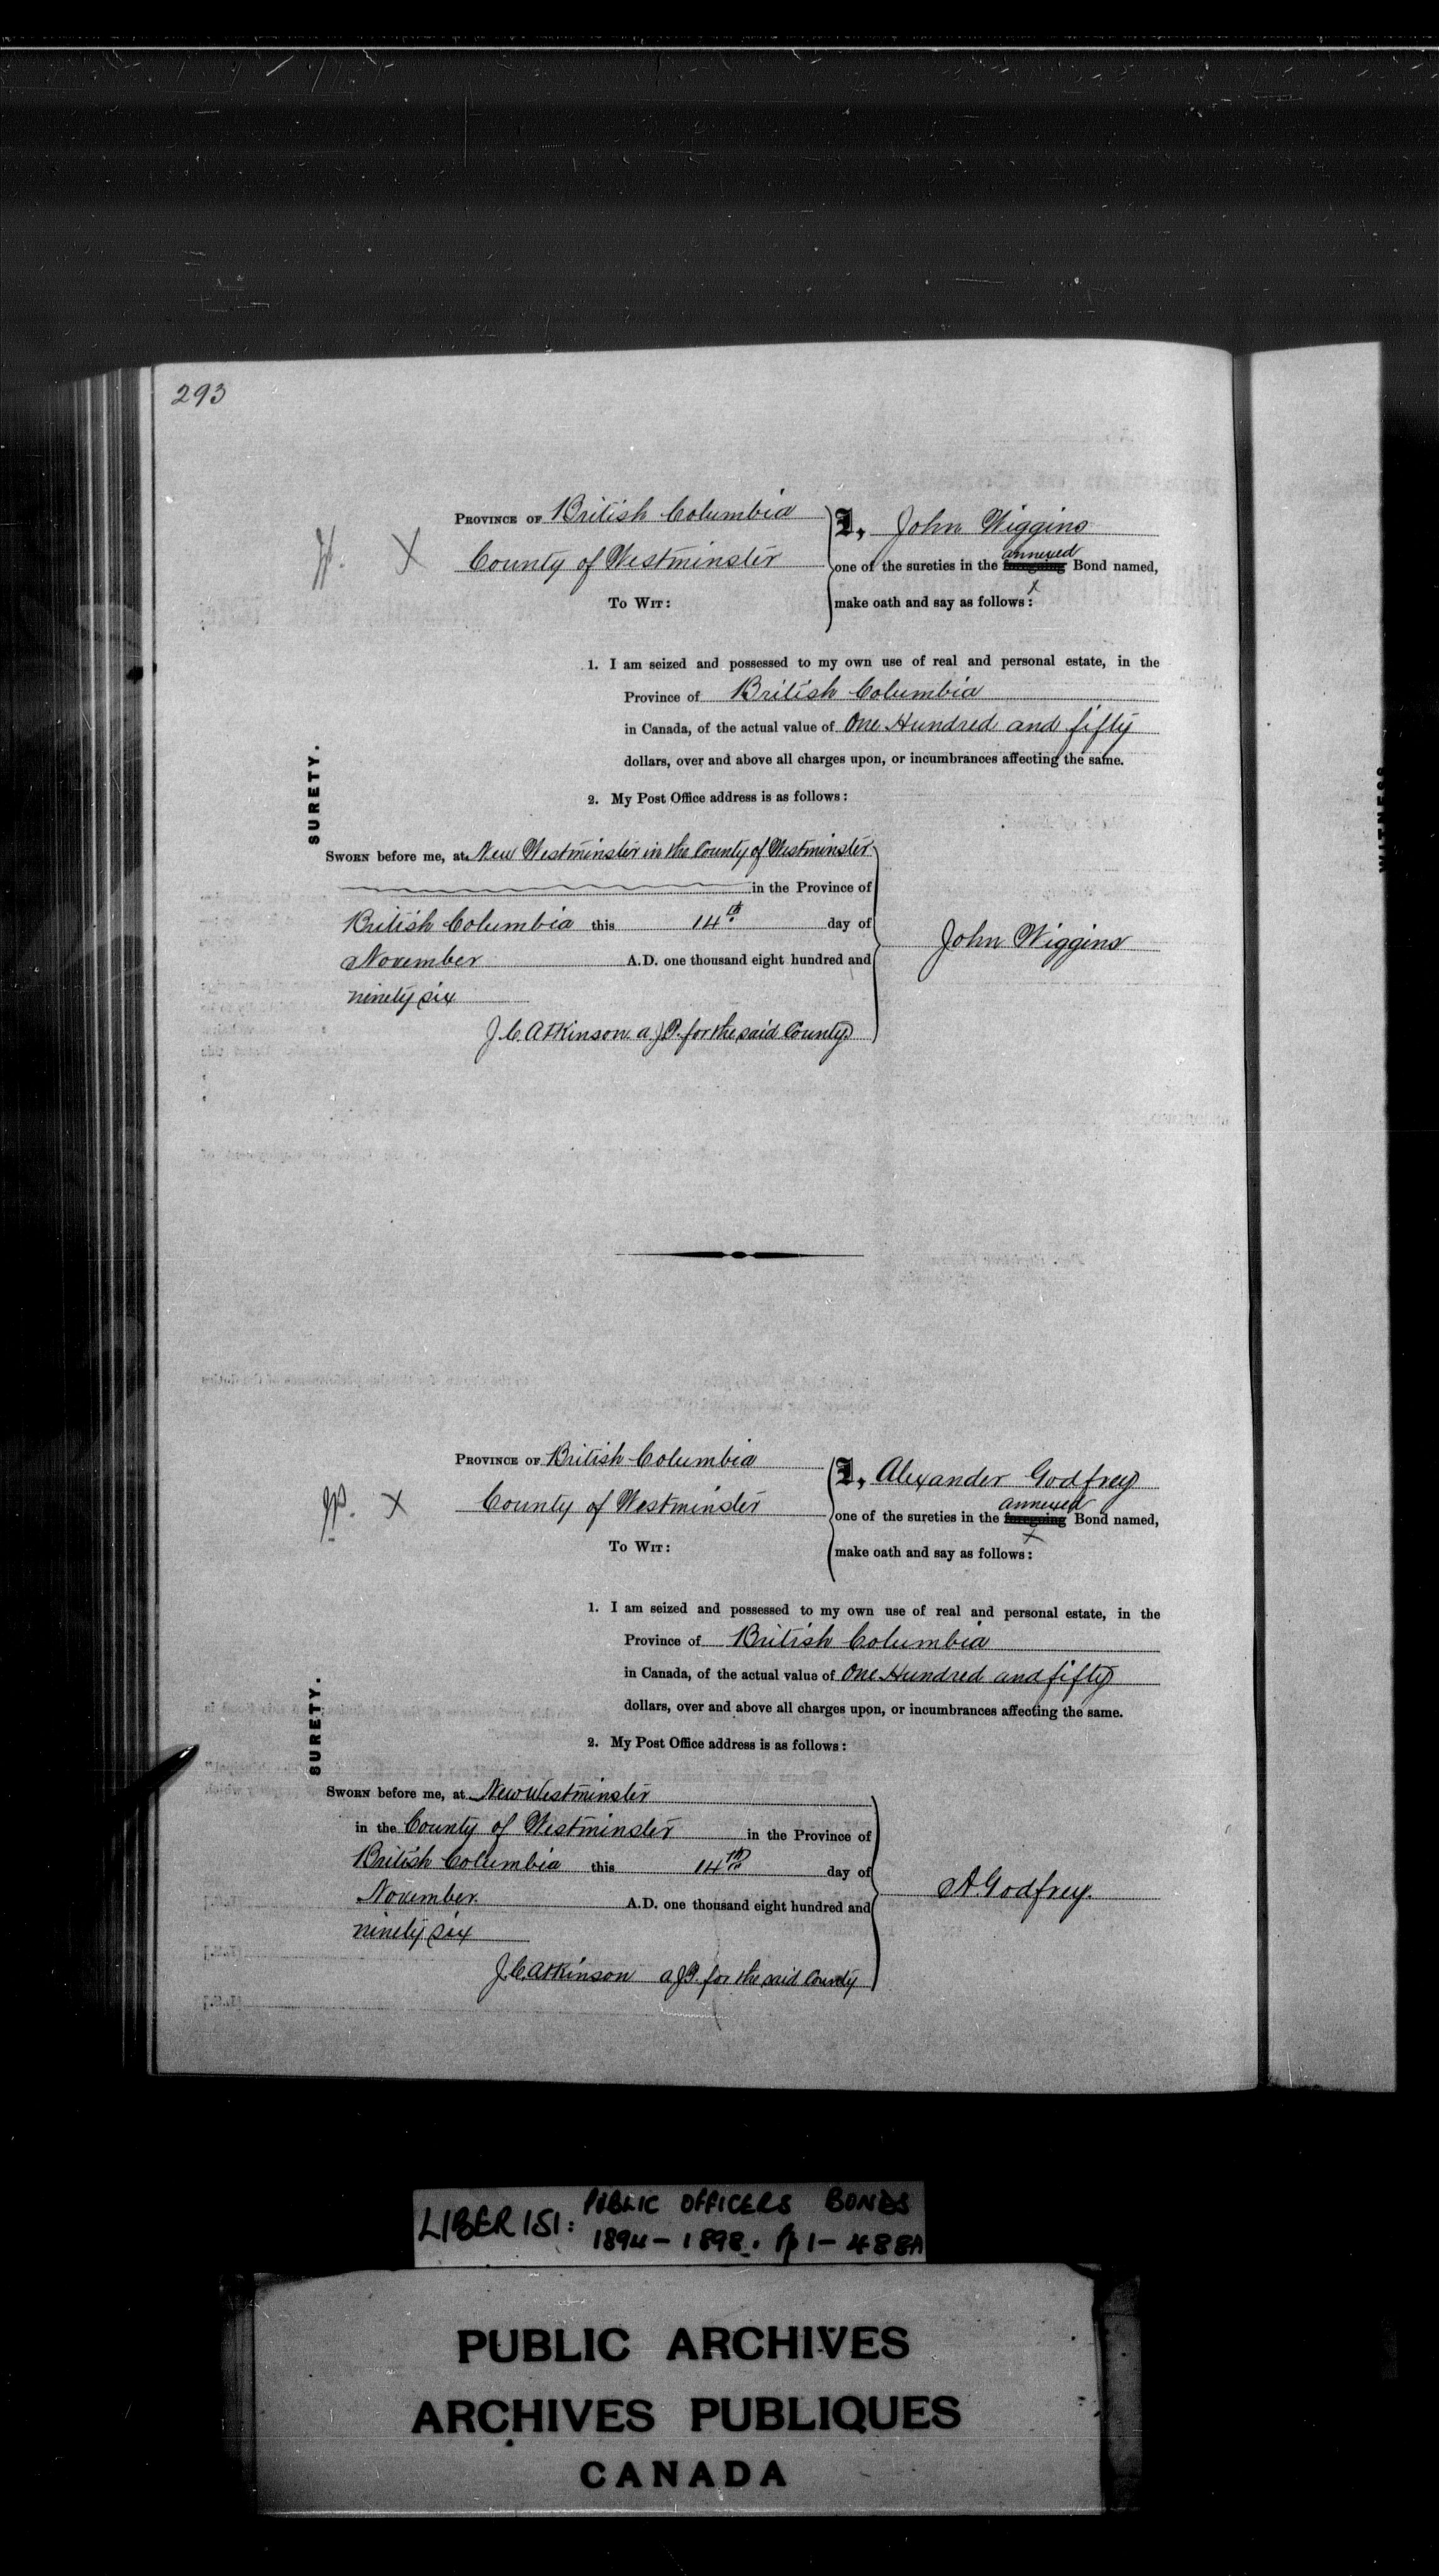 293
PROVINCE OF British Columbia
County of Westminster
TO WIT:
I, John Wiggins
one of the sureties in the foregoing annexed Bond named,
make oath and say as follows:
X
X
SURETY.
1. I am seized and possessed to my own use of real and personal estate, in the
Province of British Columbia
in Canada, of the actual value of One Hundred and fifty
dollars, over and above all charges upon, or incumbrances affecting the same.
2. My Post Office address is as follows:
SWORN before me, at New Westminster in the County of Westminster
in the Province of
British Columbia this 14th day of
November A.D. one thousand eight hundred and
ninety six
J.C. Atkinson a J.P. for the said County
John Wiggins
PROVINCE OF British Columbia
County of Westminster
TO WIT:
I, Alexander Godfrey
one of the sureties in the foregoing annexed Bond named,
make oath and say as follows:
X
X
SURETY.
1. I am seized and possessed to my own use of real and personal estate, in the
Province of British Columbia
in Canada, of the actual value of One Hundred and fifty
dollars, over and above all charges upon, or incumbrances affecting the same.
2. My Post Office address is as follows:
SWORN before me, at New Westminster
in the County of Westminster in the Province of
British Columbia this 14th day of
November A.D. one thousand eight hundred and
ninety six
J.C. Atkinson a J.P. for the said County
A. Godfrey.
WITNESS
LIBER 151: PUBLIC OFFICERS BONDS
1894-1898. Pp 1-488A
PUBLIC ARCHIVES
ARCHIVES PUBLIQUES
CANADA